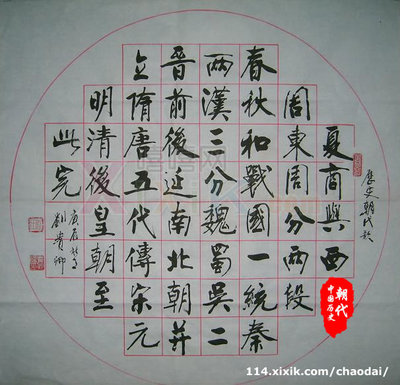 歷史朝代歌
夏商與西
周東周分兩段
春秋和戰國一統秦
兩漢三分魏蜀吳二
晉前後延南北朝并
立隋唐五代傳宋元
明清後皇朝至
此完
庚辰
劉貴卿
朝代
中国历史
114.xixik.com/chaodai/